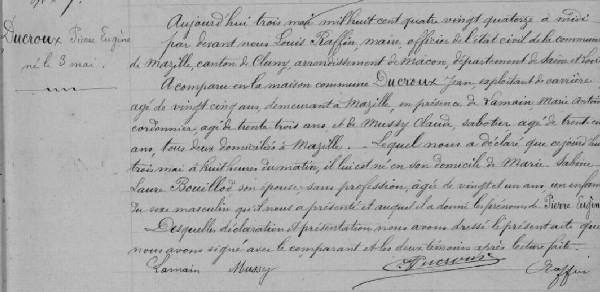 Ducroux Pierre Eugène
né le 3 mai.
Aujourd'hui trois mai mil huit cent quatre vingt quatorze à midi
par devant nous Louis Raffin, maire, officier de l'état civil de la commune
de Mazille, canton de Cluny, arrondissement de Macon, département de Saône et Loire
A comparu en la maison commune Ducroux Jean, exploitant de carrière
agé de vingt cinq ans, demeurant à Mazille, en présence de Lamain Marie Antoine
cordonnier, agé de trente trois ans, et de Mussy Claude, sabotier agé de trente
ans, tous deux domiciliés à Mazille. Lequel nous a déclaré que cejourd'hui
trois mai à huit heures du matin, il lui est né en son domicile de Marie Sabine
Laure Bouillod son épouse, sans profession, agée de vingt et un ans, un enfant
du sexe masculin qu'il nous a présenté et auquel il a donné les prénoms de Pierre Eugène
Desquelles déclaration et présentation nous avons dressé le présent acte que
nous avons signé avec le comparant et les deux témoins après lecture faite.
Lamain Mussy Ducroux Raffin